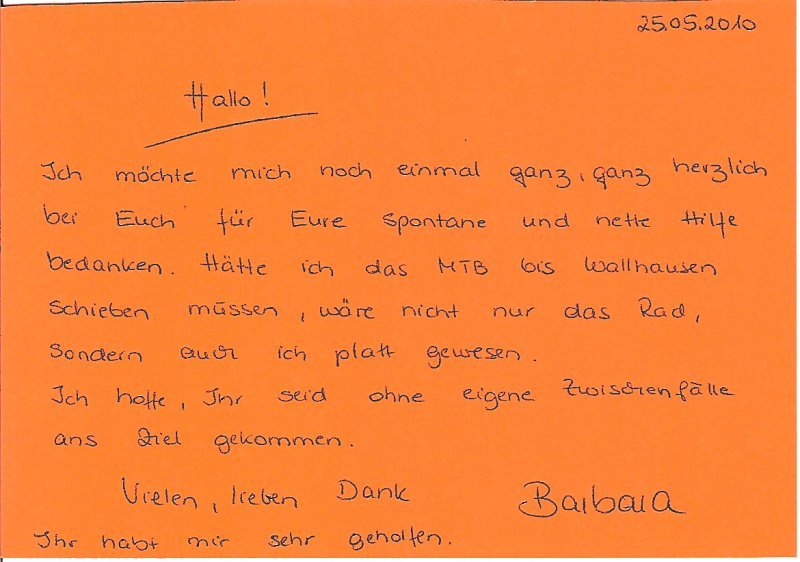 25.05.2010
Hallo!
Ich möchte mich noch einmal ganz, ganz herzlich
bei Euch für Eure spontane und nette Hilfe
bedanken. Hätte ich das MTB bis Wallhausen
schieben müssen, wäre nicht nur das Rad,
sondern auch ich platt gewesen.
Ich hoffe, Ihr seid ohne eigene Zwischenfälle
ans Ziel gekommen.
Vielen, lieben Dank Barbara
Ihr habt mir sehr geholfen.